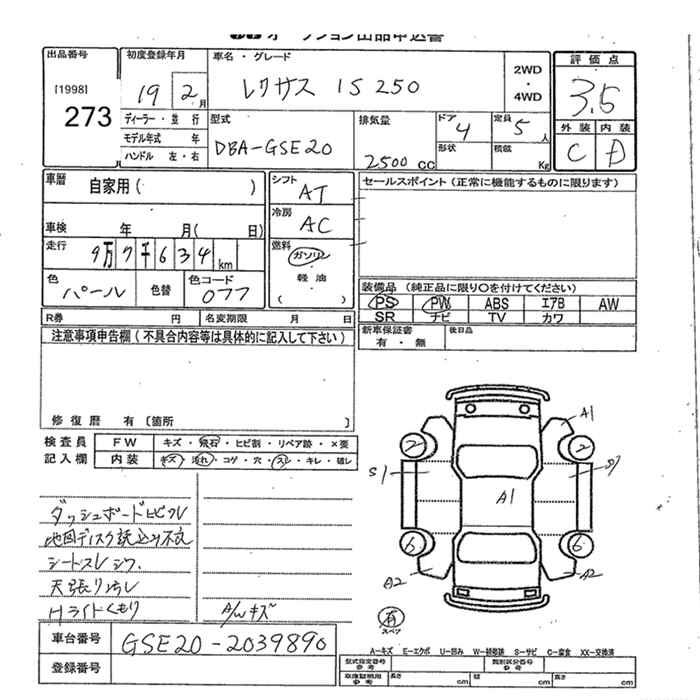 オークション出品申込書
出品番号
[1998]
273
初度登録年月
19 2月
ディーラー・並行
モデル年式 年
ハンドル 左・右
車名・グレード
レクサス IS250
2WD
・
4WD
評価点
3.5
外装 内装
C D
型式
DBA-GSE20
排気量
2500 CC
ドア
4
形状
定員
5人
積載
Kg
車歴
自家用( )
車検 年 月( 日)
走行
9万7千634km
色
パール
色替
色コード
077
シフト
AT
冷房
AC
燃料
ガソリン
軽油
( )
セールスポイント(正常に機能するものに限ります)
装備品 (純正品に限り○を付けてください)
PS PW ABS エアB AW
SR ナビ TV カワ
R券 円 名変期限 月 日
新車保証書
有・無
後日品
注意事項申告欄(不具合内容等は具体的に記入して下さい)
修復歴 有〔箇所 〕
検査員
記入欄
FW キズ・飛石・ヒビ割・リペア跡・×要
内装 キズ・汚れ・コゲ・穴・スレ・キレ・破レ
ダッシュボードヒビワレ
地図ディスク読込み不良
シートスレシワ
天張り汚レ
Hライトくもり
A/Wキズ
A1
2 2
S1 S1
A1
6 6
A2 A2
有
スペア
車台番号
GSE20-2039890
登録番号
A-キズ E-エクボ U-凹み W-補修跡 S-サビ C-腐食 XX-交換済
型式指定番号
参考
類別区分番号
参考
車庫証明用
参考
長さ cm 幅 cm 高さ cm